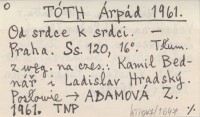 TÓTH Árpád 1961.
Od srdce k srdci. —
Praha. Ss. 120, 16°. Tłum.
z węg. na czes.: Kamil Bed-
nář i Ladislav Hradský.
Posłowie → ADAMOVÁ Z.
1961. TNP